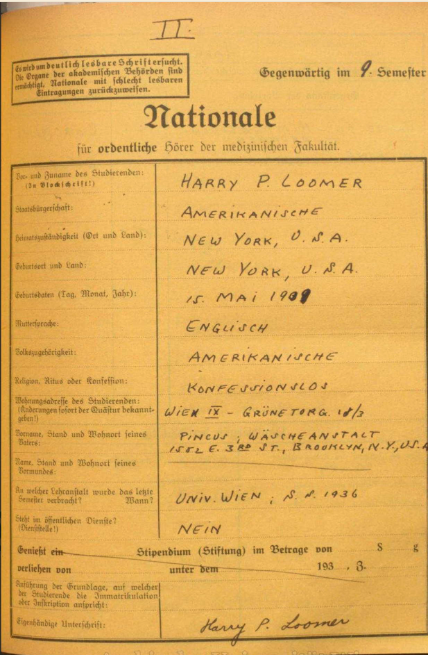 II.
Es wird um deutlich lesbare Schrift ersucht.
Die Organe der akademischen Behörden sind
ermächtigt, Nationale mit schlecht lesbaren
Eintragungen zurückzuweisen.
Gegenwärtig im 9. Semester
Nationale
für ordentliche Hörer der medizinischen Fakultät.
Vor- und Zuname des Studierenden:
(In Blockschrift!)
HARRY P. LOOMER
Staatsbürgerschaft:
AMERIKANISCHE
Heimatszuständigkeit (Ort und Land):
NEW YORK, U.S.A.
Geburtsort und Land:
NEW YORK, U.S.A.
Geburtsdaten (Tag, Monat, Jahr):
15. MAI
Muttersprache:
ENGLISCH
Volkszugehörigkeit:
AMERIKANISCHE
Religion, Ritus oder Konfession:
KONFESSIONSLOS
Wohnungsadresse des Studierenden:
(Änderungen sofort der Quästur bekannt-
geben!)
WIEN IX - GRÜNETORG.
Vorname, Stand und Wohnort seines
Vaters:
PINCUS; WÄSCHEANSTALT
1552 E. 3RD ST., BROOKLYN, N.Y., U.S.A
Name, Stand und Wohnort seines
Vormundes:
An welcher Lehranstalt wurde das letzte
Semester verbracht? Wann?
UNIV. WIEN; S.S. 1936
Steht im öffentlichen Dienste?
(Dienststelle!)
NEIN
Genießt ein Stipendium (Stiftung) im Betrage von S g
verliehen von unter dem 193 , Z.
Anführung der Grundlage, auf welcher
der Studierende die Immatrikulation
oder Inskription anspricht:
Eigenhändige Unterschrift:
Harry P. Loomer